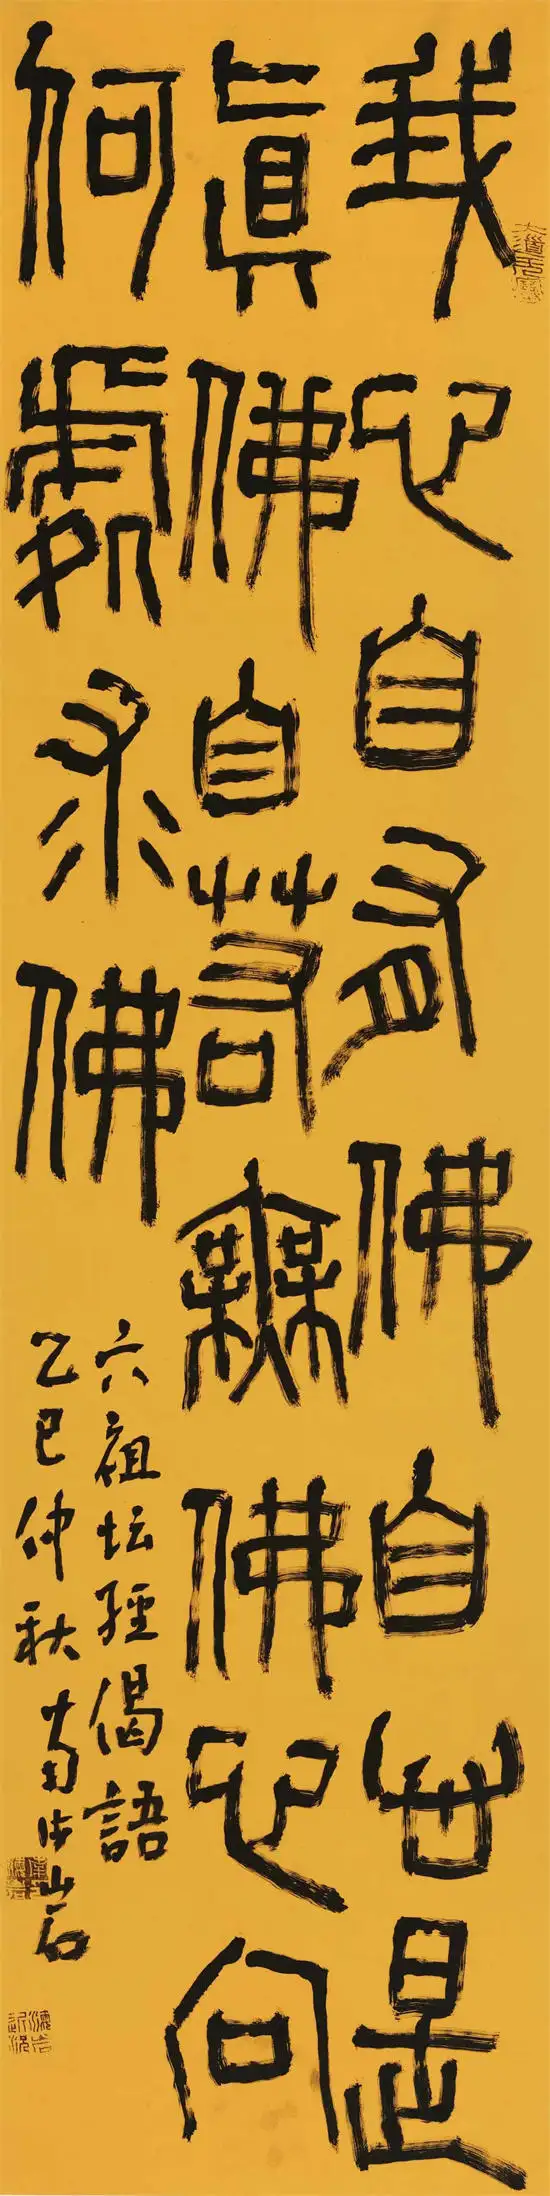 我心自有佛自是
真佛自若無佛心向
何處求佛
六祖坛經偈語
乙巳仲秋